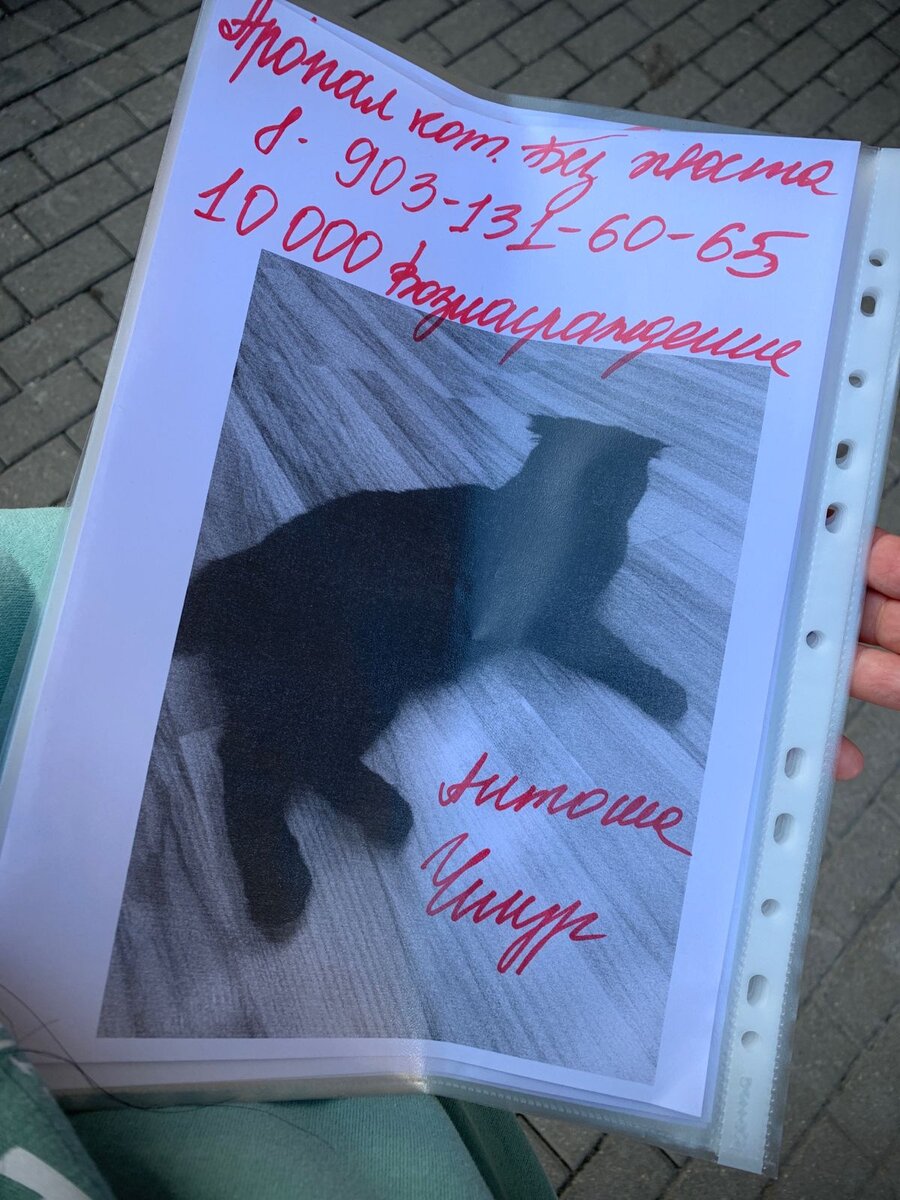 Пропал кот. Без хвоста
8-903-131-60-65
10 000 Вознаграждение
Антоша